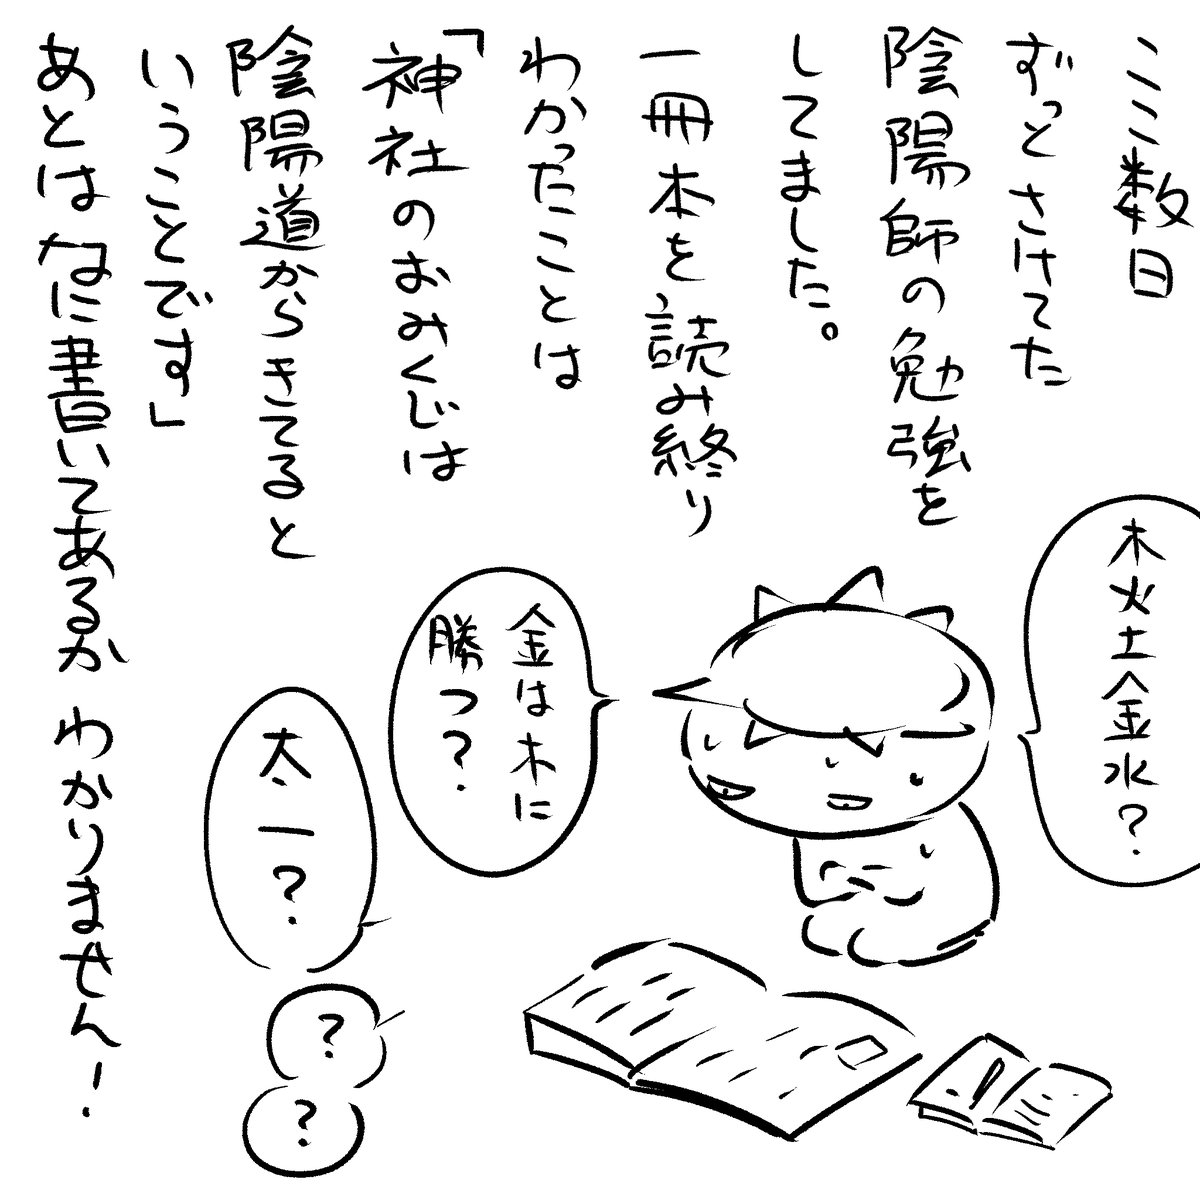 ここ数日
ずっとさけてた
陰陽師の勉強を
してました。
一冊本を読み終り
わかったことは
「神社のおみくじは
陰陽道からきてると
いうことです」
あとはなに書いてあるかわかりません!
木火土金水?
金は木に
勝つ?
太一?
?
?